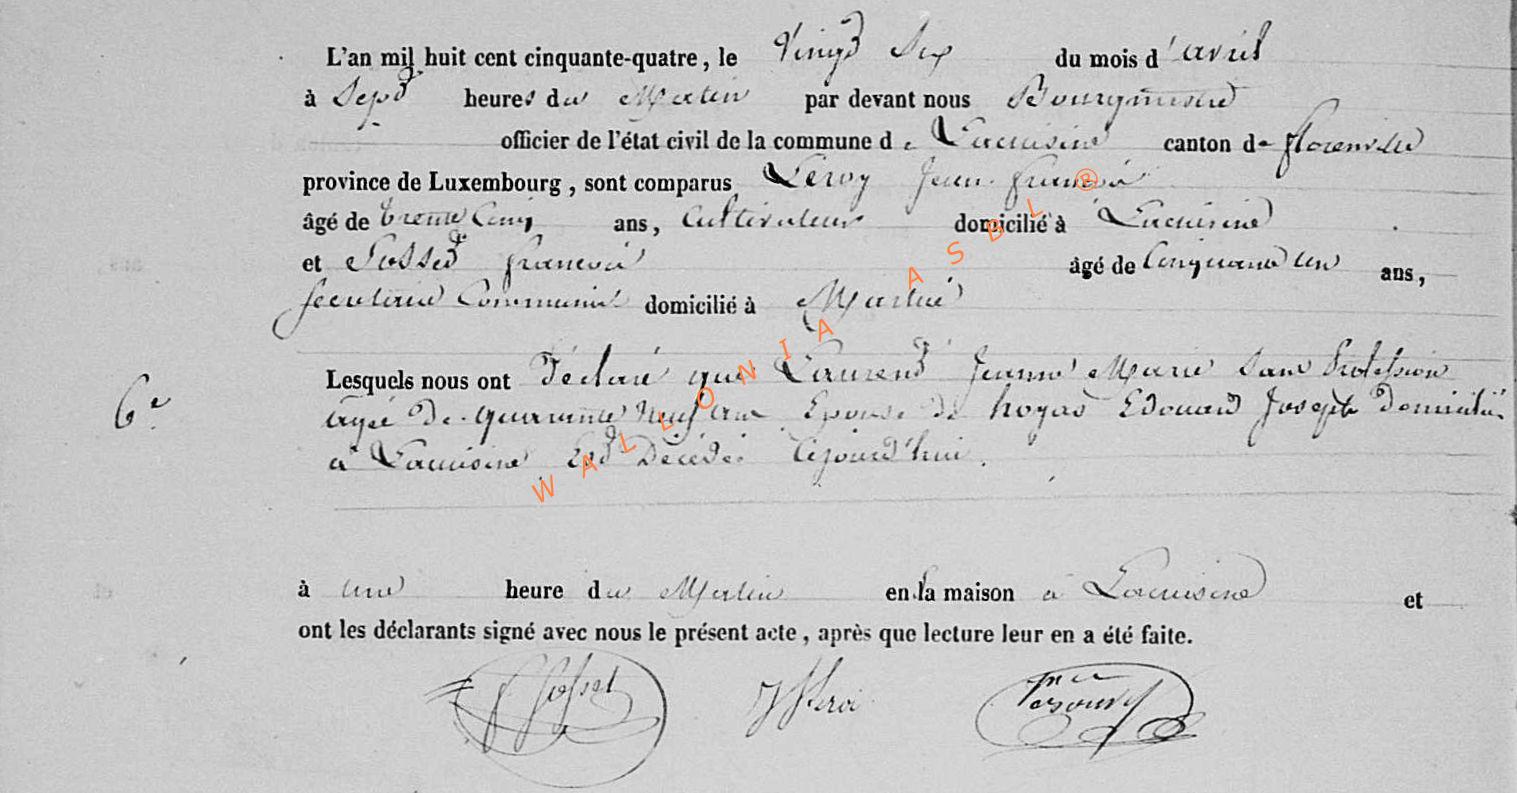 L'an mil huit cent cinquante-quatre, le Vingt Six du mois d'avril
à Sept heures du Matin par devant nous Bourgmestre
officier de l'état civil de la commune de Lacuisine canton de florenville
province de Luxembourg, sont comparus Leroy Jean françois
âgé de trente Cinq ans, Cultivateur domicilié à Lacuisine
et françois âgé de Cinquante un ans,
Secretaire Communal domicilié à Martué
Lesquels nous ont Déclaré que Laurent Jeanne Marie Sans Profession
6e
agée de quarante Neuf ans Epouse de Edouard Joseph Domicilié
à Lacuisine Est Décédée Cejourd'hui.
à une heure du Matin en la maison à Lacuisine et
ont les déclarants signé avec nous le présent acte, après que lecture leur en a été faite.
JfLeroi
WALLONIA ASBL ®